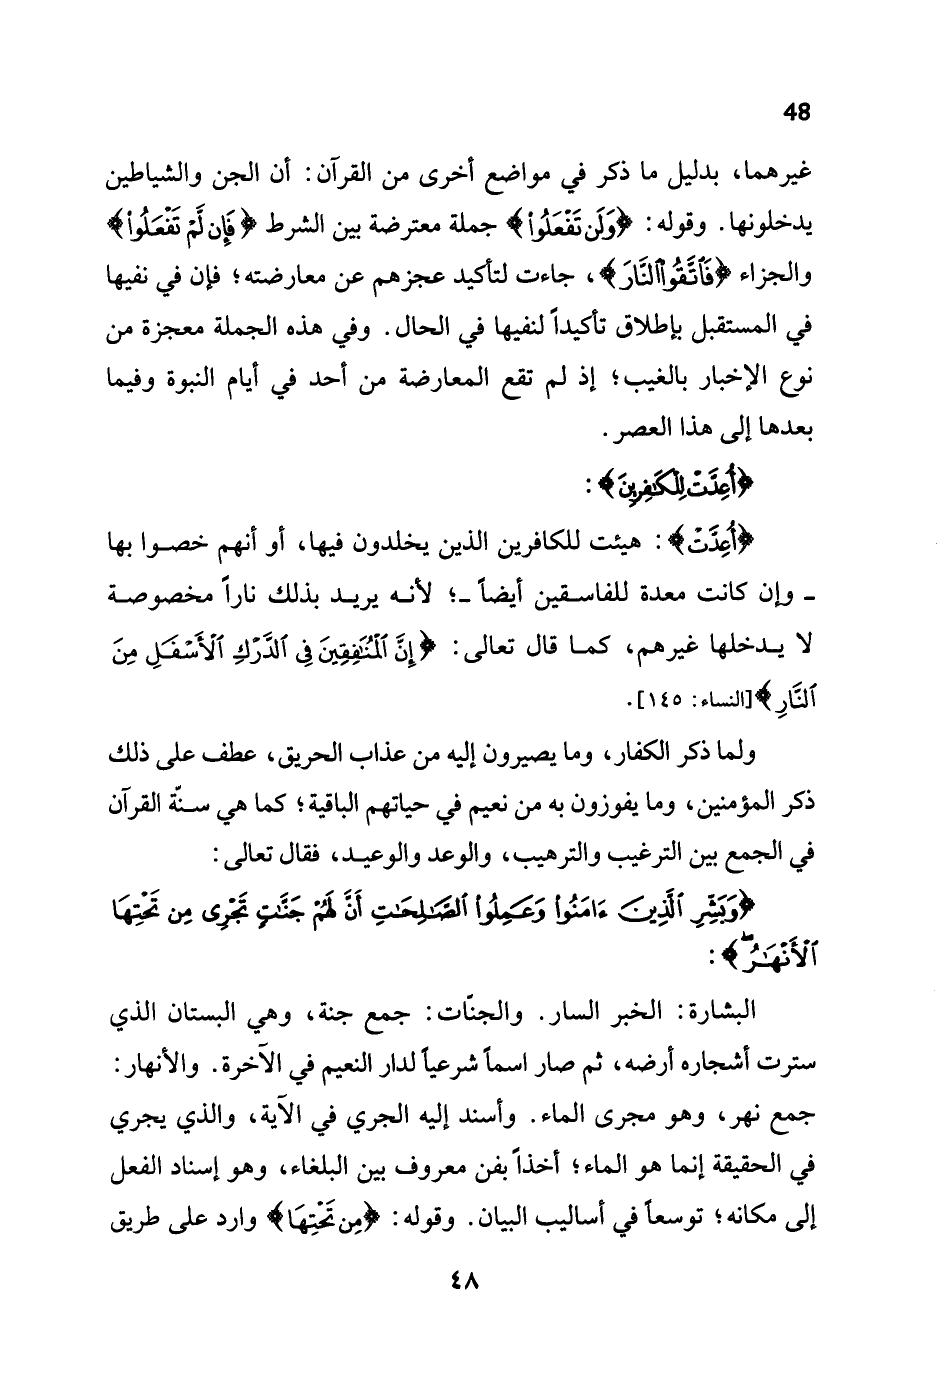 48
غيرهما، بدليل ما ذكر في مواضع أخرى من القرآن: أن الجن والشياطين
يدخلونها. وقوله: ﴿وَلَن تَفْعَلُوا۟﴾ جملة معترضة بين الشرط ﴿فَإِن لَّمْ تَفْعَلُوا۟﴾
والجزاء ﴿فَٱتَّقُوا۟ ٱلنَّارَ﴾، جاءت لتأكيد عجزهم عن معارضته؛ فإن في نفيها
في المستقبل بإطلاق تأكيداً لنفيها في الحال. وفي هذه الجملة معجزة من
نوع الإخبار بالغيب؛ إذ لم تقع المعارضة من أحد في أيام النبوة وفيما
بعدها إلى هذا العصر.
﴿أُعِدَّتْ لِلْكَٰفِرِينَ﴾:
﴿أُعِدَّتْ﴾: هيئت للكافرين الذين يخلدون فيها، أو أنهم خصوا بها
- وإن كانت معدة للفاسقين أيضاً -؛ لأنه يريد بذلك ناراً مخصوصة
لا يدخلها غيرهم، كما قال تعالى: ﴿إِنَّ ٱلْمُنَٰفِقِينَ فِى ٱلدَّرْكِ ٱلْأَسْفَلِ مِنَ
ٱلنَّارِ﴾ [النساء: ١٤٥].
ولما ذكر الكفار، وما يصيرون إليه من عذاب الحريق، عطف على ذلك
ذكر المؤمنين، وما يفوزون به من نعيم في حياتهم الباقية؛ كما هي سنّة القرآن
في الجمع بين الترغيب والترهيب، والوعد والوعيد، فقال تعالى:
﴿وَبَشِّرِ ٱلَّذِينَ ءَامَنُوا۟ وَعَمِلُوا۟ ٱلصَّٰلِحَٰتِ أَنَّ لَهُمْ جَنَّٰتٍ تَجْرِى مِن تَحْتِهَا
ٱلْأَنْهَٰرُ ۖ﴾:
البشارة: الخبر السار. والجنّات: جمع جنة، وهي البستان الذي
سترت أشجاره أرضه، ثم صار اسماً شرعياً لدار النعيم في الآخرة. والأنهار:
جمع نهر، وهو مجرى الماء. وأسند إليه الجري في الآية، والذي يجري
في الحقيقة إنما هو الماء؛ أخذاً بفن معروف بين البلغاء، وهو إسناد الفعل
إلى مكانه؛ توسعاً في أساليب البيان. وقوله: ﴿مِن تَحْتِهَا﴾ وارد على طريق
٤٨